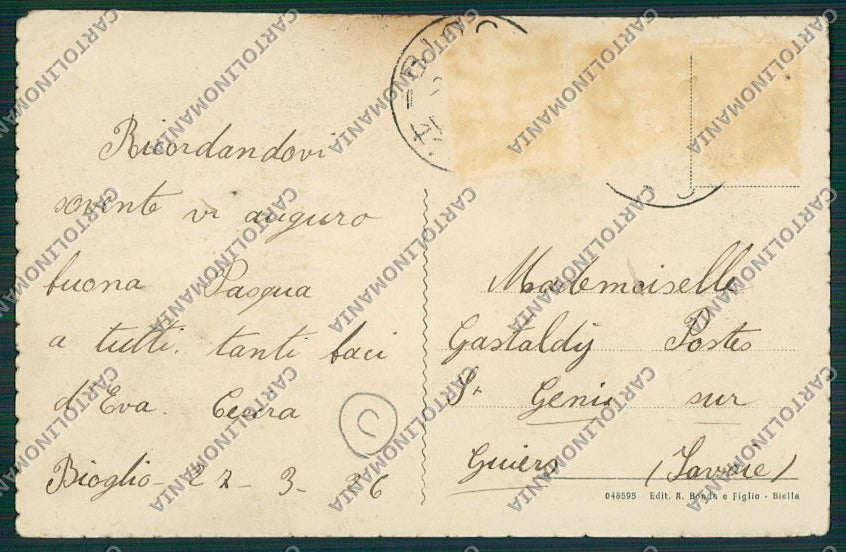 Ricordandovi
sovente vi auguro
buona Pasqua
a tutti. tanti baci
d'Eva. Cesira
Bioglio - 27 - 3 - 36
C
Mademoiselle
Gastaldÿ Postes
St Genix sur
Guiers (Savoie)
048595 Edit. A. Bonda e Figlio - Biella
CARTOLINOMANIA